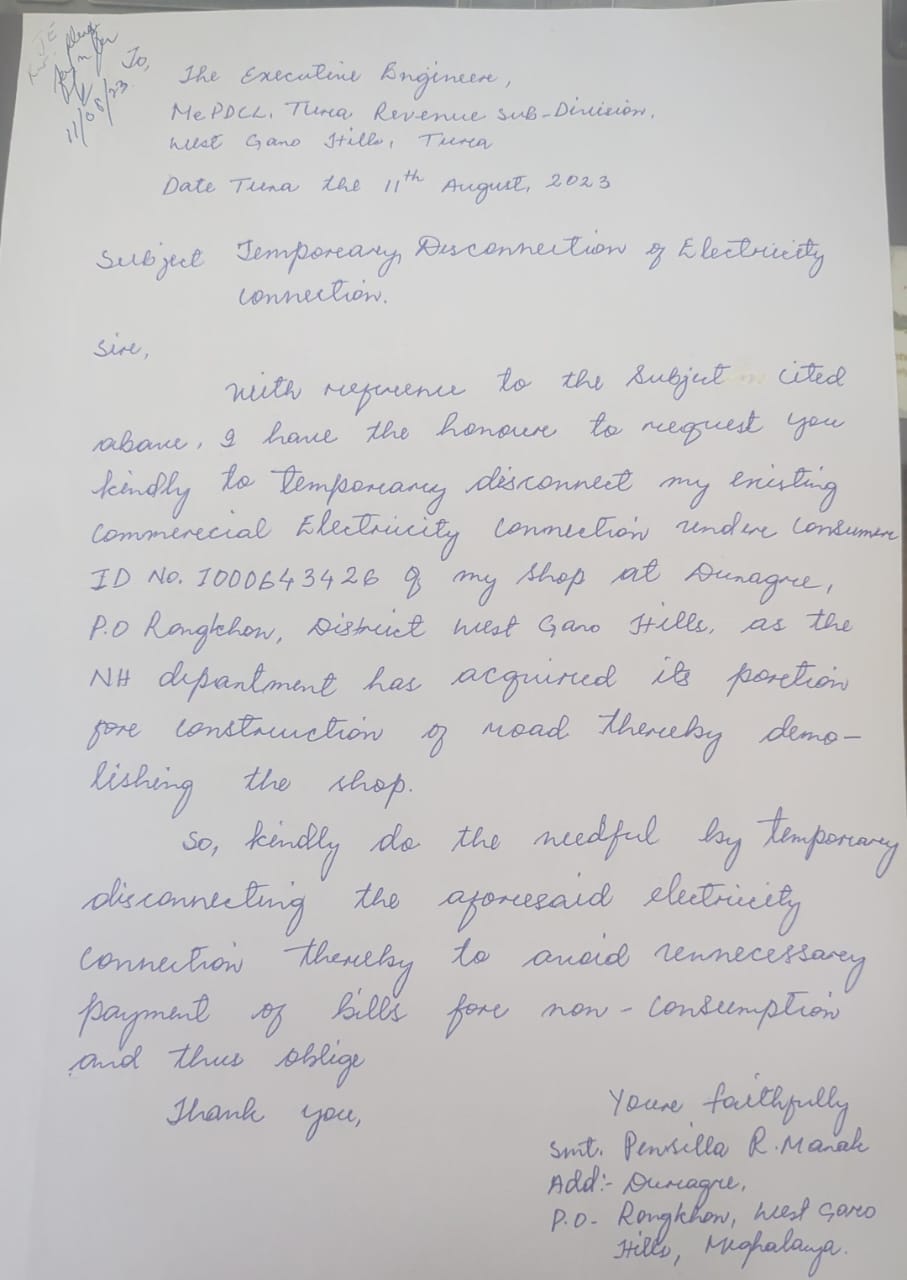 JE
11/08/23
To,
The Executive Engineer,
MePDCL, Tura Revenue Sub-Division,
West Garo Hills, Tura
Date Tura the 11th August, 2023
Subject Temporary Disconnection of Electricity
connection.
Sir,
With reference to the Subject cited
above, I have the honour to request you
kindly to temporary disconnect my existing
commercial Electricity connection under Consumer
ID No. 1000643426 of my shop at Dunagre,
P.O Rongkhon, District West Garo Hills, as the
NH department has acquired its portion
for construction of road thereby demo-
lishing the shop.
So, kindly do the needful by temporary
disconnecting the aforesaid electricity
connection thereby to avoid unnecessary
payment of bills for non-consumption
and thus oblige
Thank you,
Your faithfully
Smt. Pensilla R. Marak
Add:- Duragre,
P.O- Rongkhon, West Garo
Hills, Meghalaya.